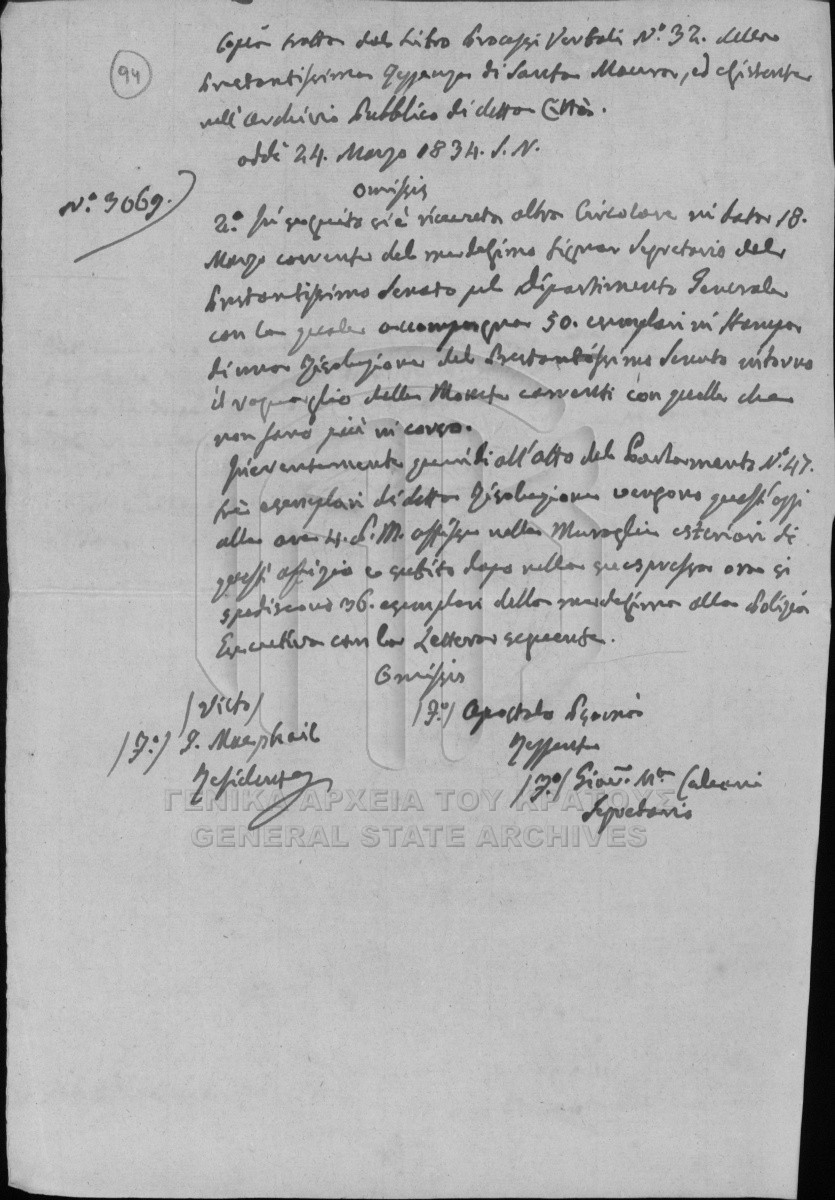 94
Copia tratta dal Libro Processi Verbali N.º 32. della
Prestantissima Reggenza di Santa Maura, ed esistente
nell'Archivio Pubblico di detta Città.
addì 24. Marzo 1834. S. N.
Omissis
N.º 3069.
2.º In seguito si è ricevuta altra Circolare in data 18.
Marzo corrente del medesimo Signor Segretario del
Prestantissimo Senato pel Dipartimento Generale
con la quale accompagna 50. esemplari in Stampa
di una Risoluzione del Prestantissimo Senato intorno
il ragguaglio delle Monete correnti con quelle che
non sono più in corso.
Inerentemente quindi all'atto del Parlamento N.º 47.
tre esemplari di detta Risoluzione vengono quest'oggi
alle ore 4. P. M. affisse nelle Muraglie esteriori di
quest'offizio e subito dopo nella suespressa ora si
spediscono 36. esemplari della medesima alla Polizia
Esecutiva con la Lettera seguente.
Omissis
/Visto/
/F.º/ Apostolo
/F.º/ J. Macphail
Reggente
Residente
/F.º/ Giov. M.
Segretario
ΓΕΝΙΚΑ ΑΡΧΕΙΑ ΤΟΥ ΚΡΑΤΟΥΣ
GENERAL STATE ARCHIVES